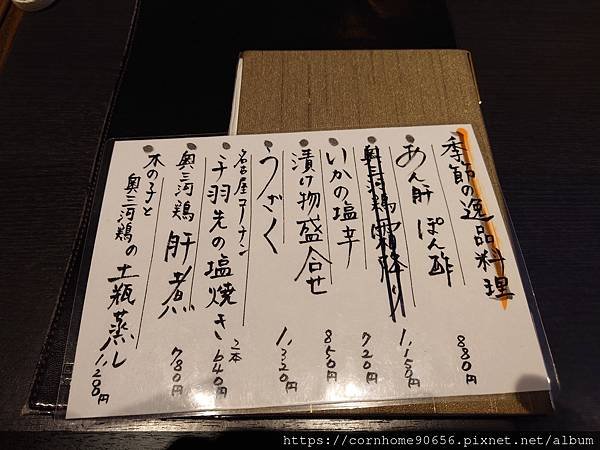 季節の逸品料理
あん肝 ぽん酢 880円
奥三河鶏霜降り 1,150円
いかの塩辛 720円
漬け物盛合せ 850円
うざく 1,320円
名古屋コーチン
手羽先の塩焼き 2本 640円
奥三河鶏 肝煮 780円
木の子と
奥三河鶏の土瓶蒸し 1,280円
https://cornhome90656.pixnet.net/album